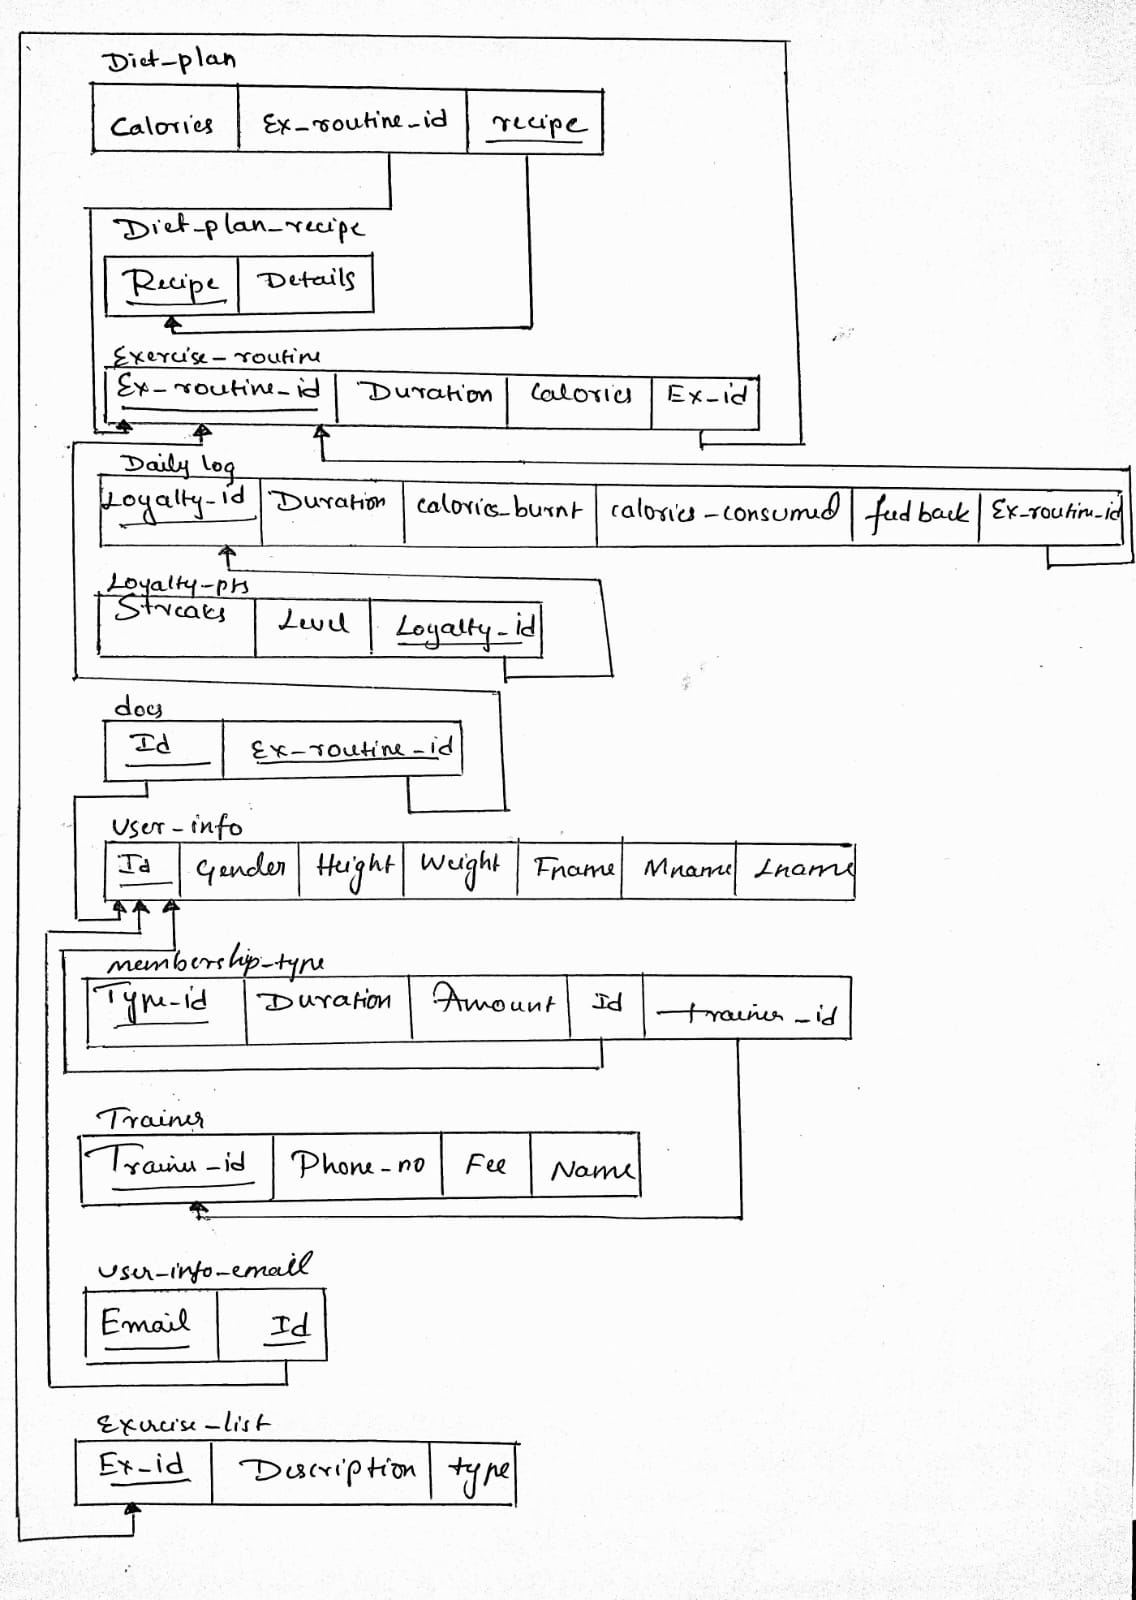 Diet-plan
Calories Ex-routine-id recipe
Diet-plan-recipe
Recipe Details
Exercise-routine
Ex-routine-id Duration Calories Ex-id
Daily log
Loyalty-id Duration calories-burnt calories-consumed feedback Ex-routine-id
Loyalty-pts
Streaks Level Loyalty-id
does
Id Ex-routine-id
User-info
Id Gender Height Weight Fname Mname Lname
membership-type
Type-id Duration Amount Id trainer-id
Trainer
Trainer-id Phone-no Fee Name
User-info-email
Email Id
Exercise-list
Ex-id Description type